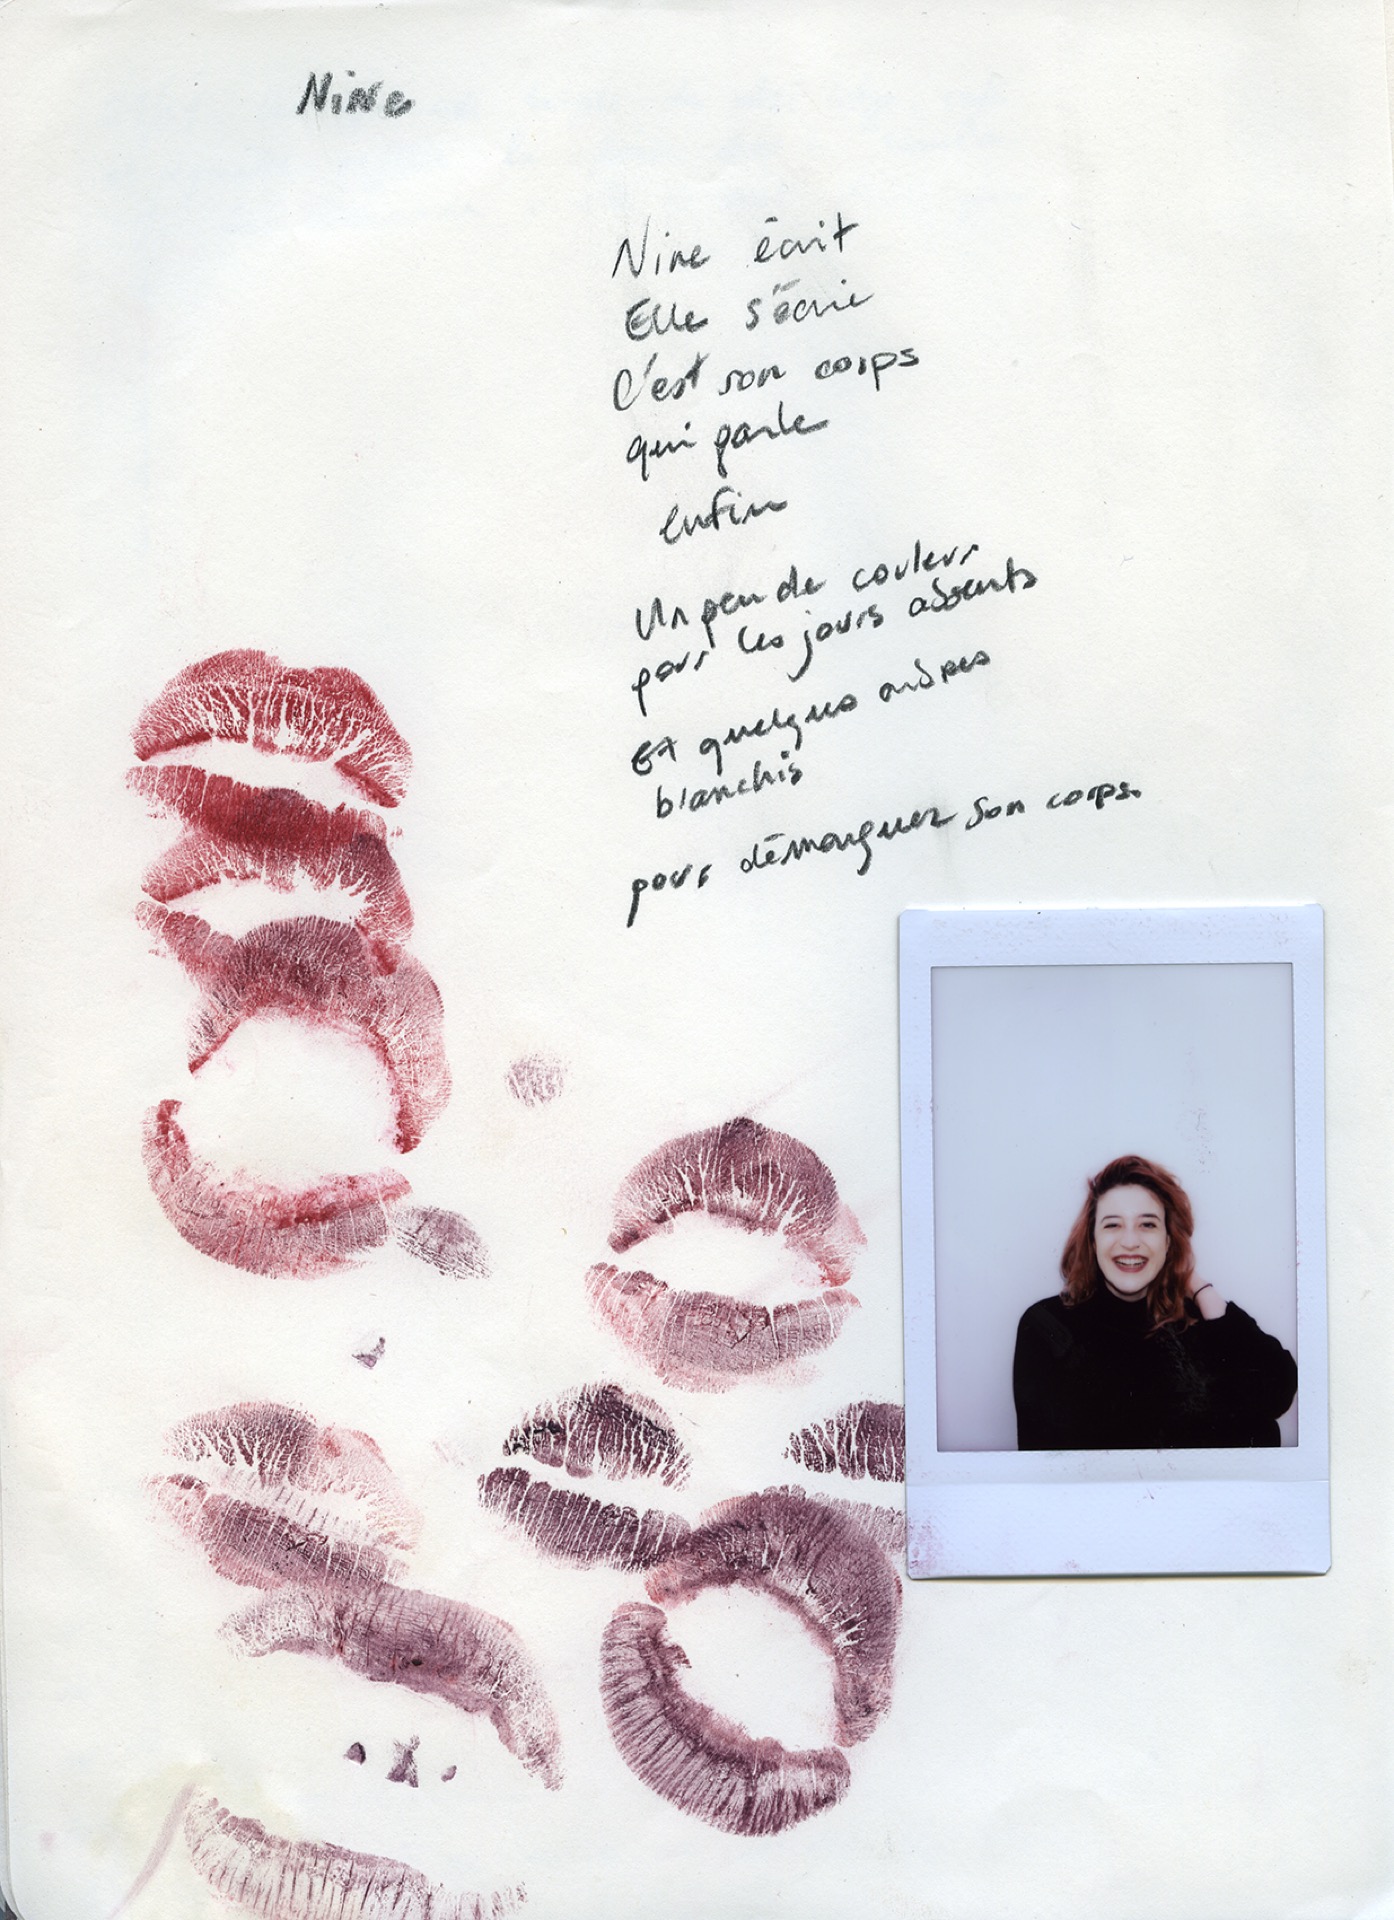 Nine
Nine écrit
Elle s'écrie
C'est son corps
qui parle
enfin
Un peu de couleur
pour les jours absents
Et quelques
blanchis
pour démarquer son corps.